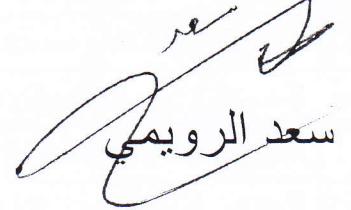 سعد
سعد الرويمي